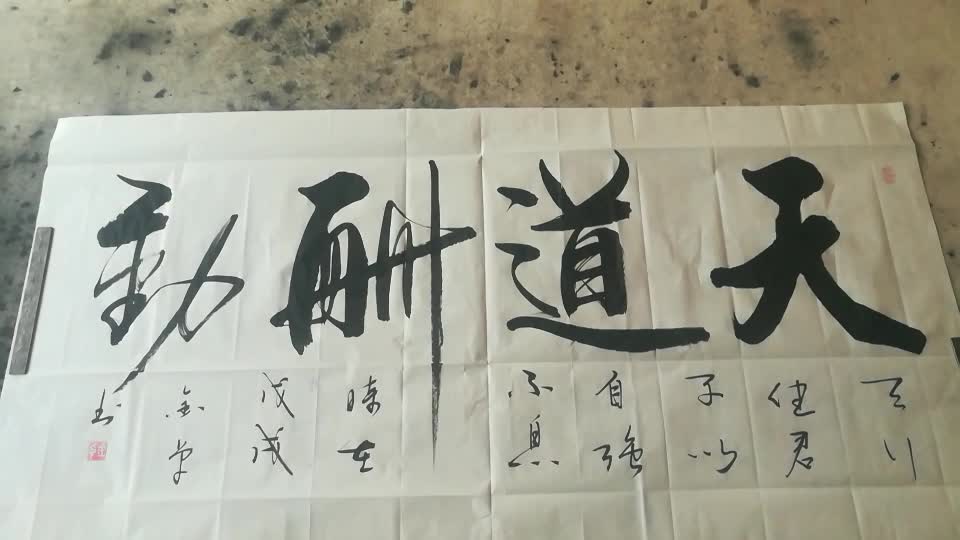 天道酬勤
天行
健君
子以
自强
不息
時在
戊戌
金
书